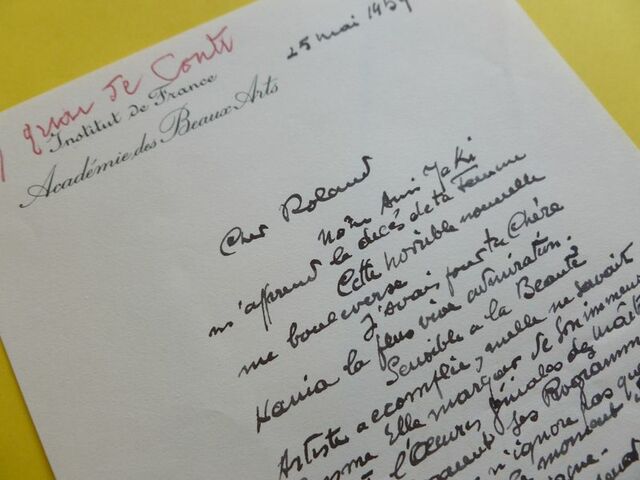 quai de Conti
25 mai 1959
Institut de France
Académie des Beaux Arts
Cher Roland
Notre Ami Jaki
m'apprend le décès de ta Femme
Cette horrible nouvelle
me bouleverse
J'avais pour ta Chère
Hania la plus vive admiration.
Sensible a la Beauté
Artiste accomplie, nulle ne savait
comme Elle marquer de son immense
l'Oeuvres géniales des maît
ses Programm
n'ignore pas que
le moment